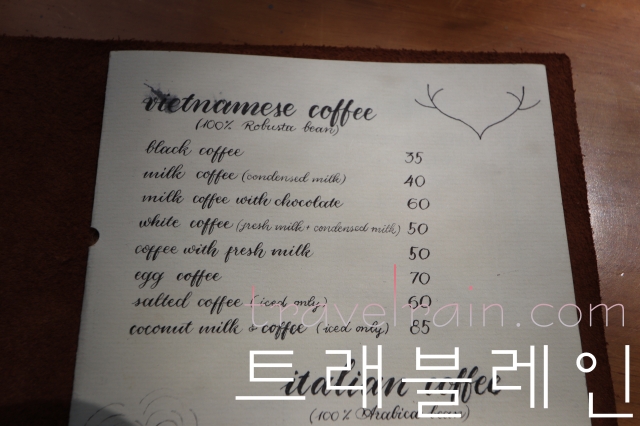 vietnamese coffee
(100% Robusta bean)
black coffee 35
milk coffee (condensed milk) 40
milk coffee with chocolate 60
white coffee (fresh milk + condensed milk) 50
coffee with fresh milk 50
egg coffee 70
salted coffee (iced only) 60
coconut milk + coffee (iced only) 85
travelrain.com
트래블레인
italian coffee
(100% Arabica bean)